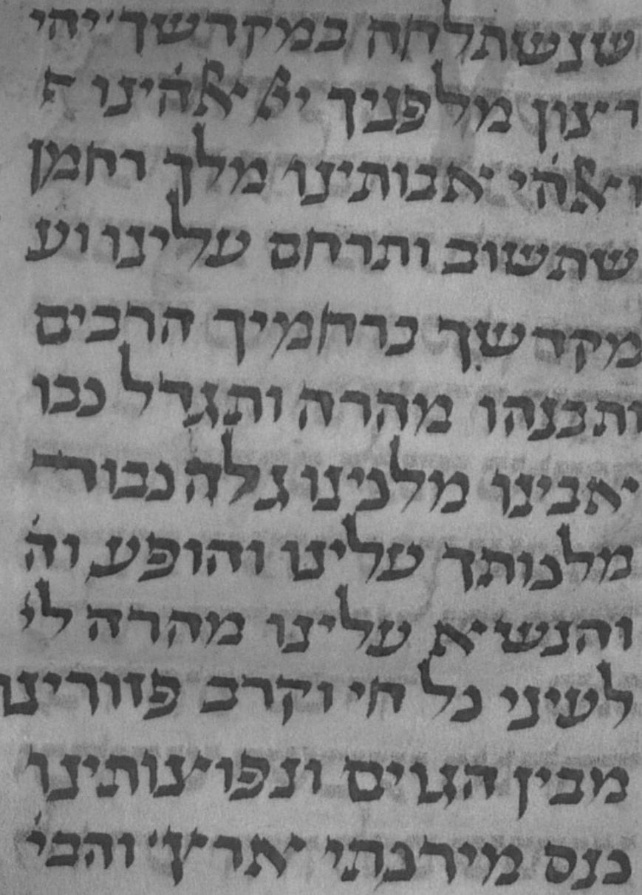 שנשתלחה במקדשך יהי
רצון מלפניך יי אלהינו ה
ואלהי אבותינו מלך רחמן
שתשוב ותרחם עלינו וע
מקדשך ברחמיך הרבים
ותבנהו מהרה ותגדל כבו
אבינו מלכינו גלה כבוד
מלכותך עלינו והופע וה
והנשא עלינו מהרה לי
לעיני כל חי וקרב פזורינו
מבין הגוים ונפוצותינו
כנס מירכתי ארץ והבי